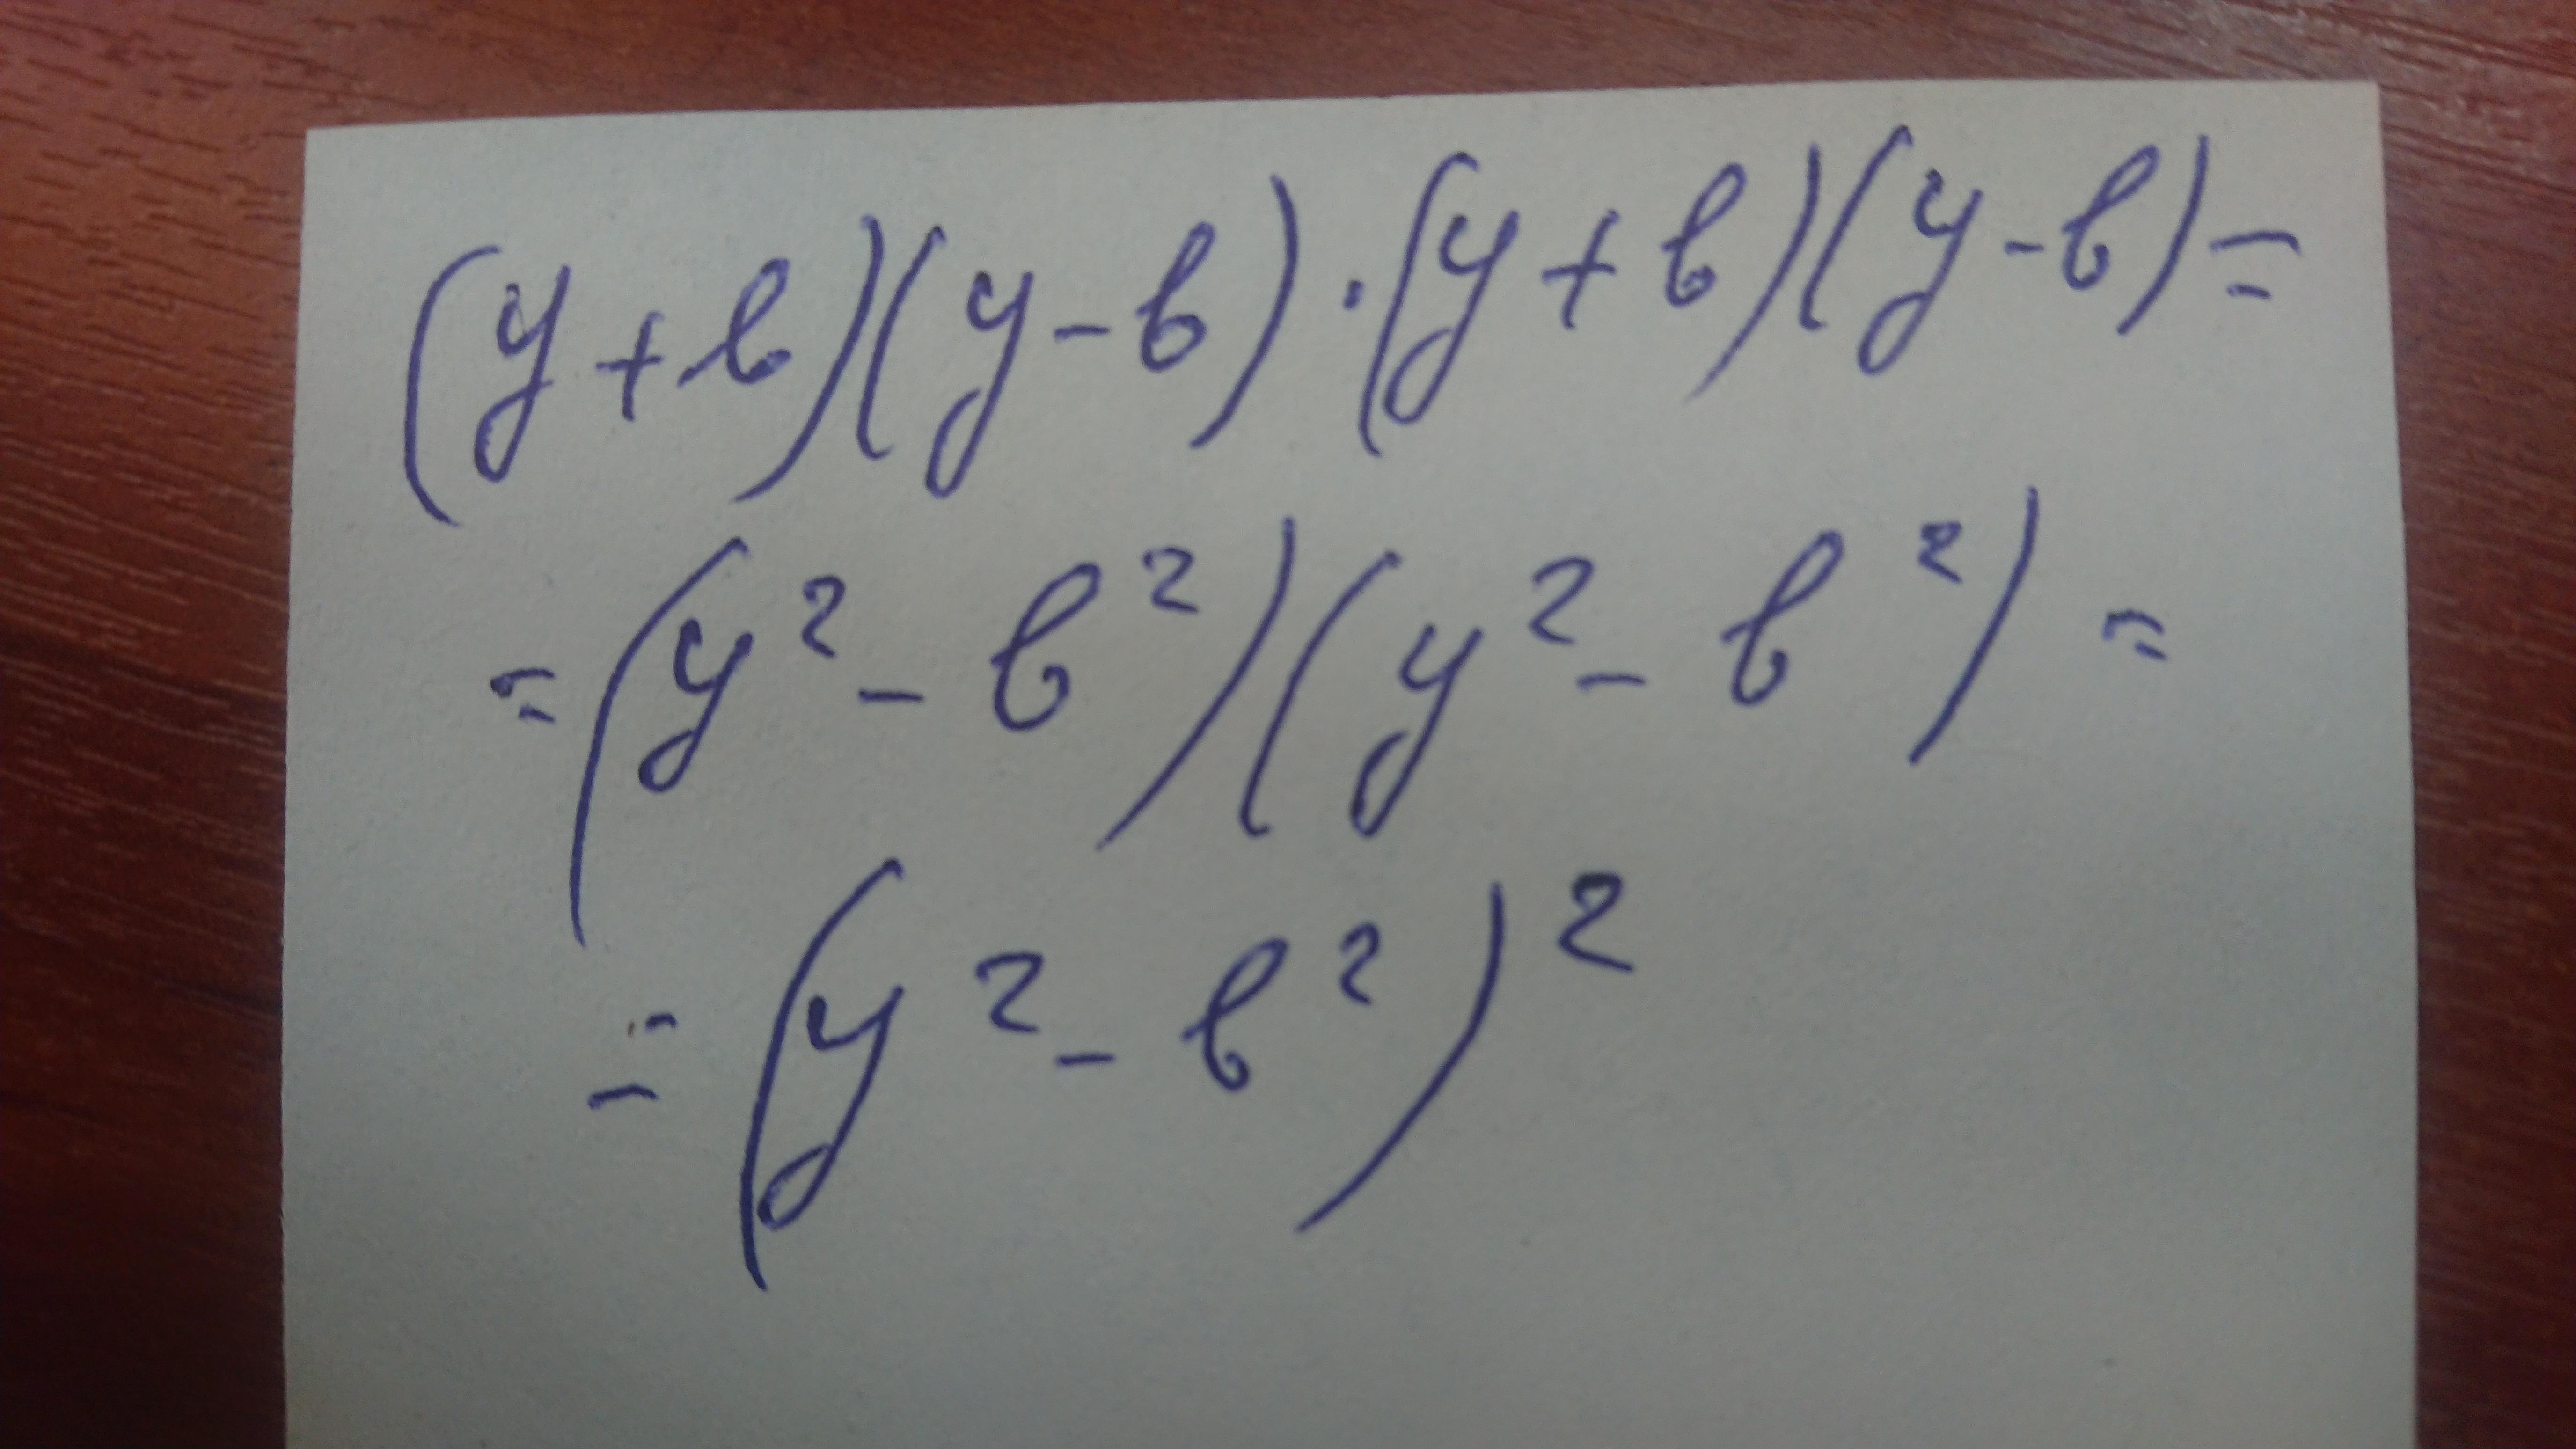 (y+b)(y-b)·(y+b)(y-b)=
=(y²-b²)(y²-b²)=
=(y²-b²)²